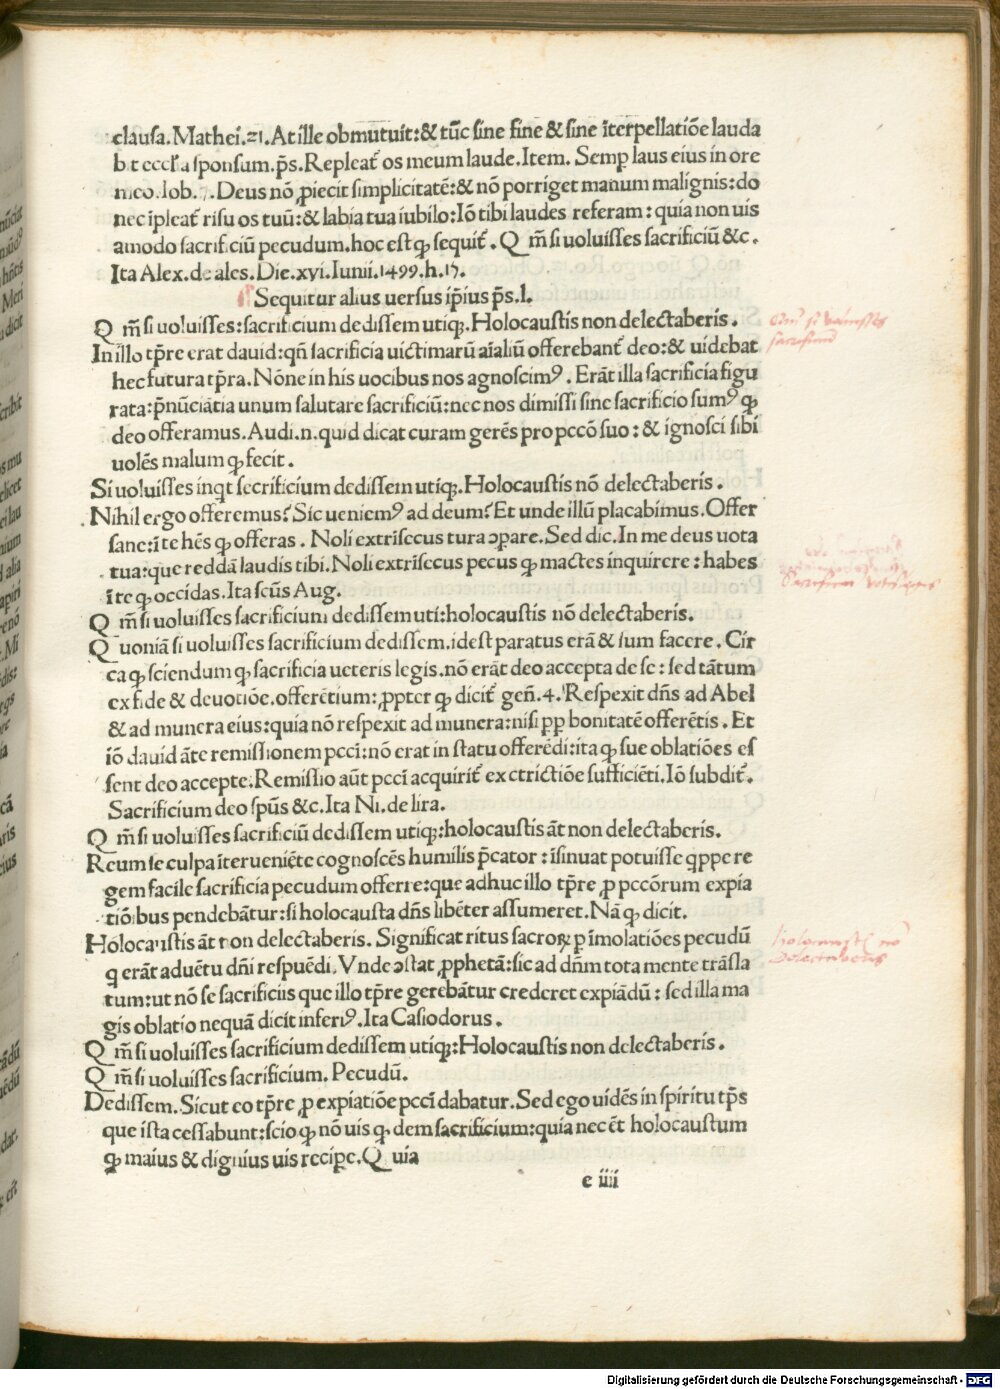 clausa. Mathei. 21. At ille obmutuit: & tūc sine fine & sine īterpellatiōe lauda
bit eccl'a sponsum. p̄s. Repleat᷑ os meum laude. Item. Semꝑ laus eius in ore
meo. Iob. 7. Deus nō ꝓiecit simplicitatē: & nō porriget manum malignis: do
nec īpleat᷑ risu os tuū: & labia tua iubilo: Iō tibi laudes referam: quia non uis
amodo sacrificiū pecudum. hoc est ꝙ sequit᷑. Qm̄ si uoluisses sacrificiū &c.
Ita Alex. de ales. Die. xvi. Iunii. 1499. h. 17.
¶ Sequitur alius uersus ip̄ius p̄s. l.
Qm̄ si uoluisses: sacrificium dedissem utiqꝫ. Holocaustis non delectaberis.
In illo tp̄re erat dauid: qn̄ sacrificia uictimarū aīaliū offerebant᷑ deo: & uidebat
hec futura tp̄ra. Nōne in his uocibus nos agnoscimꝰ. Erāt illa sacrificia figu
rata: p̄nūciātia unum salutare sacrificiū: nec nos dimissi sine sacrificio sumꝰ ꝙ
deo offeramus. Audi. n. quid dicat curam gerēs pro pccō suo: & ignosci sibi
uolēs malum ꝙ fecit.
Si uoluisses inqt secrificium dedissem utiqꝫ. Holocaustis nō delectaberis.
Nihil ergo offeremus? Sic ueniemꝰ ad deum? Et unde illū placabimus. Offer
sane: ī te hēs ꝙ offeras. Noli extrīsecus tura ↄpare. Sed dic. In me deus uota
tua: que reddā laudis tibi. Noli extrīsecus pecus ꝙ mactes inquirere: habes
ī te ꝙ occidas. Ita scūs Aug.
Qm̄ si uoluisses sacrificium dedissem uti: holocaustis nō delectaberis.
Quoniā si uoluisses sacrificium dedissem. idest paratus erā & sum facere. Cir
ca ꝙ sciendum ꝙ sacrificia ueteris legis. nō erāt deo accepta de se: sed tātum
ex fide & deuotiōe. offerētium: ꝓpter ꝙ dicit᷑ gen̄. 4. Respexit dn̄s ad Abel
& ad munera eius: quia nō respexit ad munera: nisi ꝓp bonitatē offerētis. Et
iō dauid āte remissionem pccī: nō erat in statu offerēdi: ita ꝙ sue oblatiōes es
sent deo accepte. Remissio aūt pccī acquirit᷑ ex ctrictiōe sufficiēti. Iō subdit᷑.
Sacrificium deo sp̄us &c. Ita Ni. de lira.
Qm̄ si uoluisses sacrificiū dedissem utiqꝫ: holocaustis āt non delectaberis.
Reum se culpa īterueniēte cognoscēs humilis p̄cator: īsinuat potuisse qppe re
gem facile sacrificia pecudum offerre: que adhuc illo tp̄re ꝓ pccōrum expia
tiōibus pendebātur: si holocausta dn̄s libēter assumeret. Nā ꝙ dicit.
Holocaustis āt non delectaberis. Significat ritus sacroꝝ ꝑ īmolatiōes pecudū
q erāt aduētu dn̄i respuēdi. Vnde ↄstat, ꝓphetā: sic ad dn̄m tota mente trāsla
tum: ut nō se sacrificiis que illo tp̄re gerebātur crederet expiādū: sed illa ma
gis oblatio nequā dicit inferiꝰ. Ita Casiodorus.
Qm̄ si uoluisses sacrificium dedissem utiqꝫ: Holocaustis non delectaberis.
Qm̄ si uoluisses sacrificium. Pecudū.
Dedissem. Sicut eo tp̄re ꝓ expiatiōe pccī dabatur. Sed ego uidēs in spiritu tp̄s
que ista cessabunt: scio ꝙ nō uis ꝙ dem sacrificium: quia nec ēt holocaustum
ꝙ maius & dignius uis recipe. Quia
e iiii
Qm̄ si voluisses
sacrificiū
holocaustis nō
delectaberis
Digitalisierung gefördert durch die Deutsche Forschungsgemeinschaft - DFG